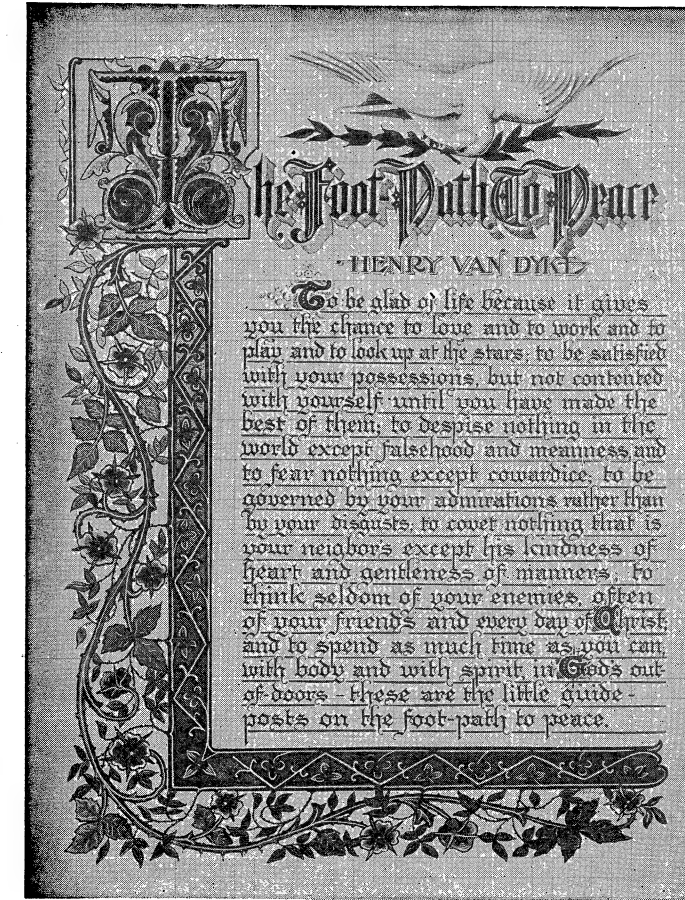 The Foot-Path To Peace
- HENRY VAN DYKE
To be glad of life because it gives
you the chance to love and to work and to
play and to look up at the stars; to be satisfied
with your possessions, but not contented
with yourself until you have made the
best of them; to despise nothing in the
world except falsehood and meanness and
to fear nothing except cowardice; to be
governed by your admirations rather than
by your disgusts; to covet nothing that is
your neigbor's except his kindness of
heart and gentleness of manners; to
think seldom of your enemies, often
of your friends and every day of Christ;
and to spend as much time as you can,
with body and with spirit, in God's out-
of-doors - these are the little guide-
posts on the foot-path to peace.